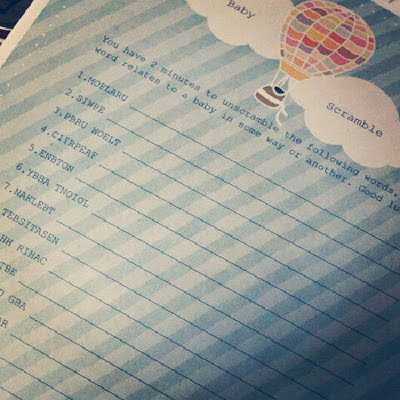 Baby
Scramble
You have 2 minutes to unscramble the following words.
word relates to a baby in some way or another. Good
1.MOFLARU
2.SIWPE
3.PBRU WOELT
4.CIIRPEAF
5.ENBTON
6.YBBA TNOIOL
7.NAKLEBT
TEBSITASEN
HH RIHAC
TBE
GBA
AR